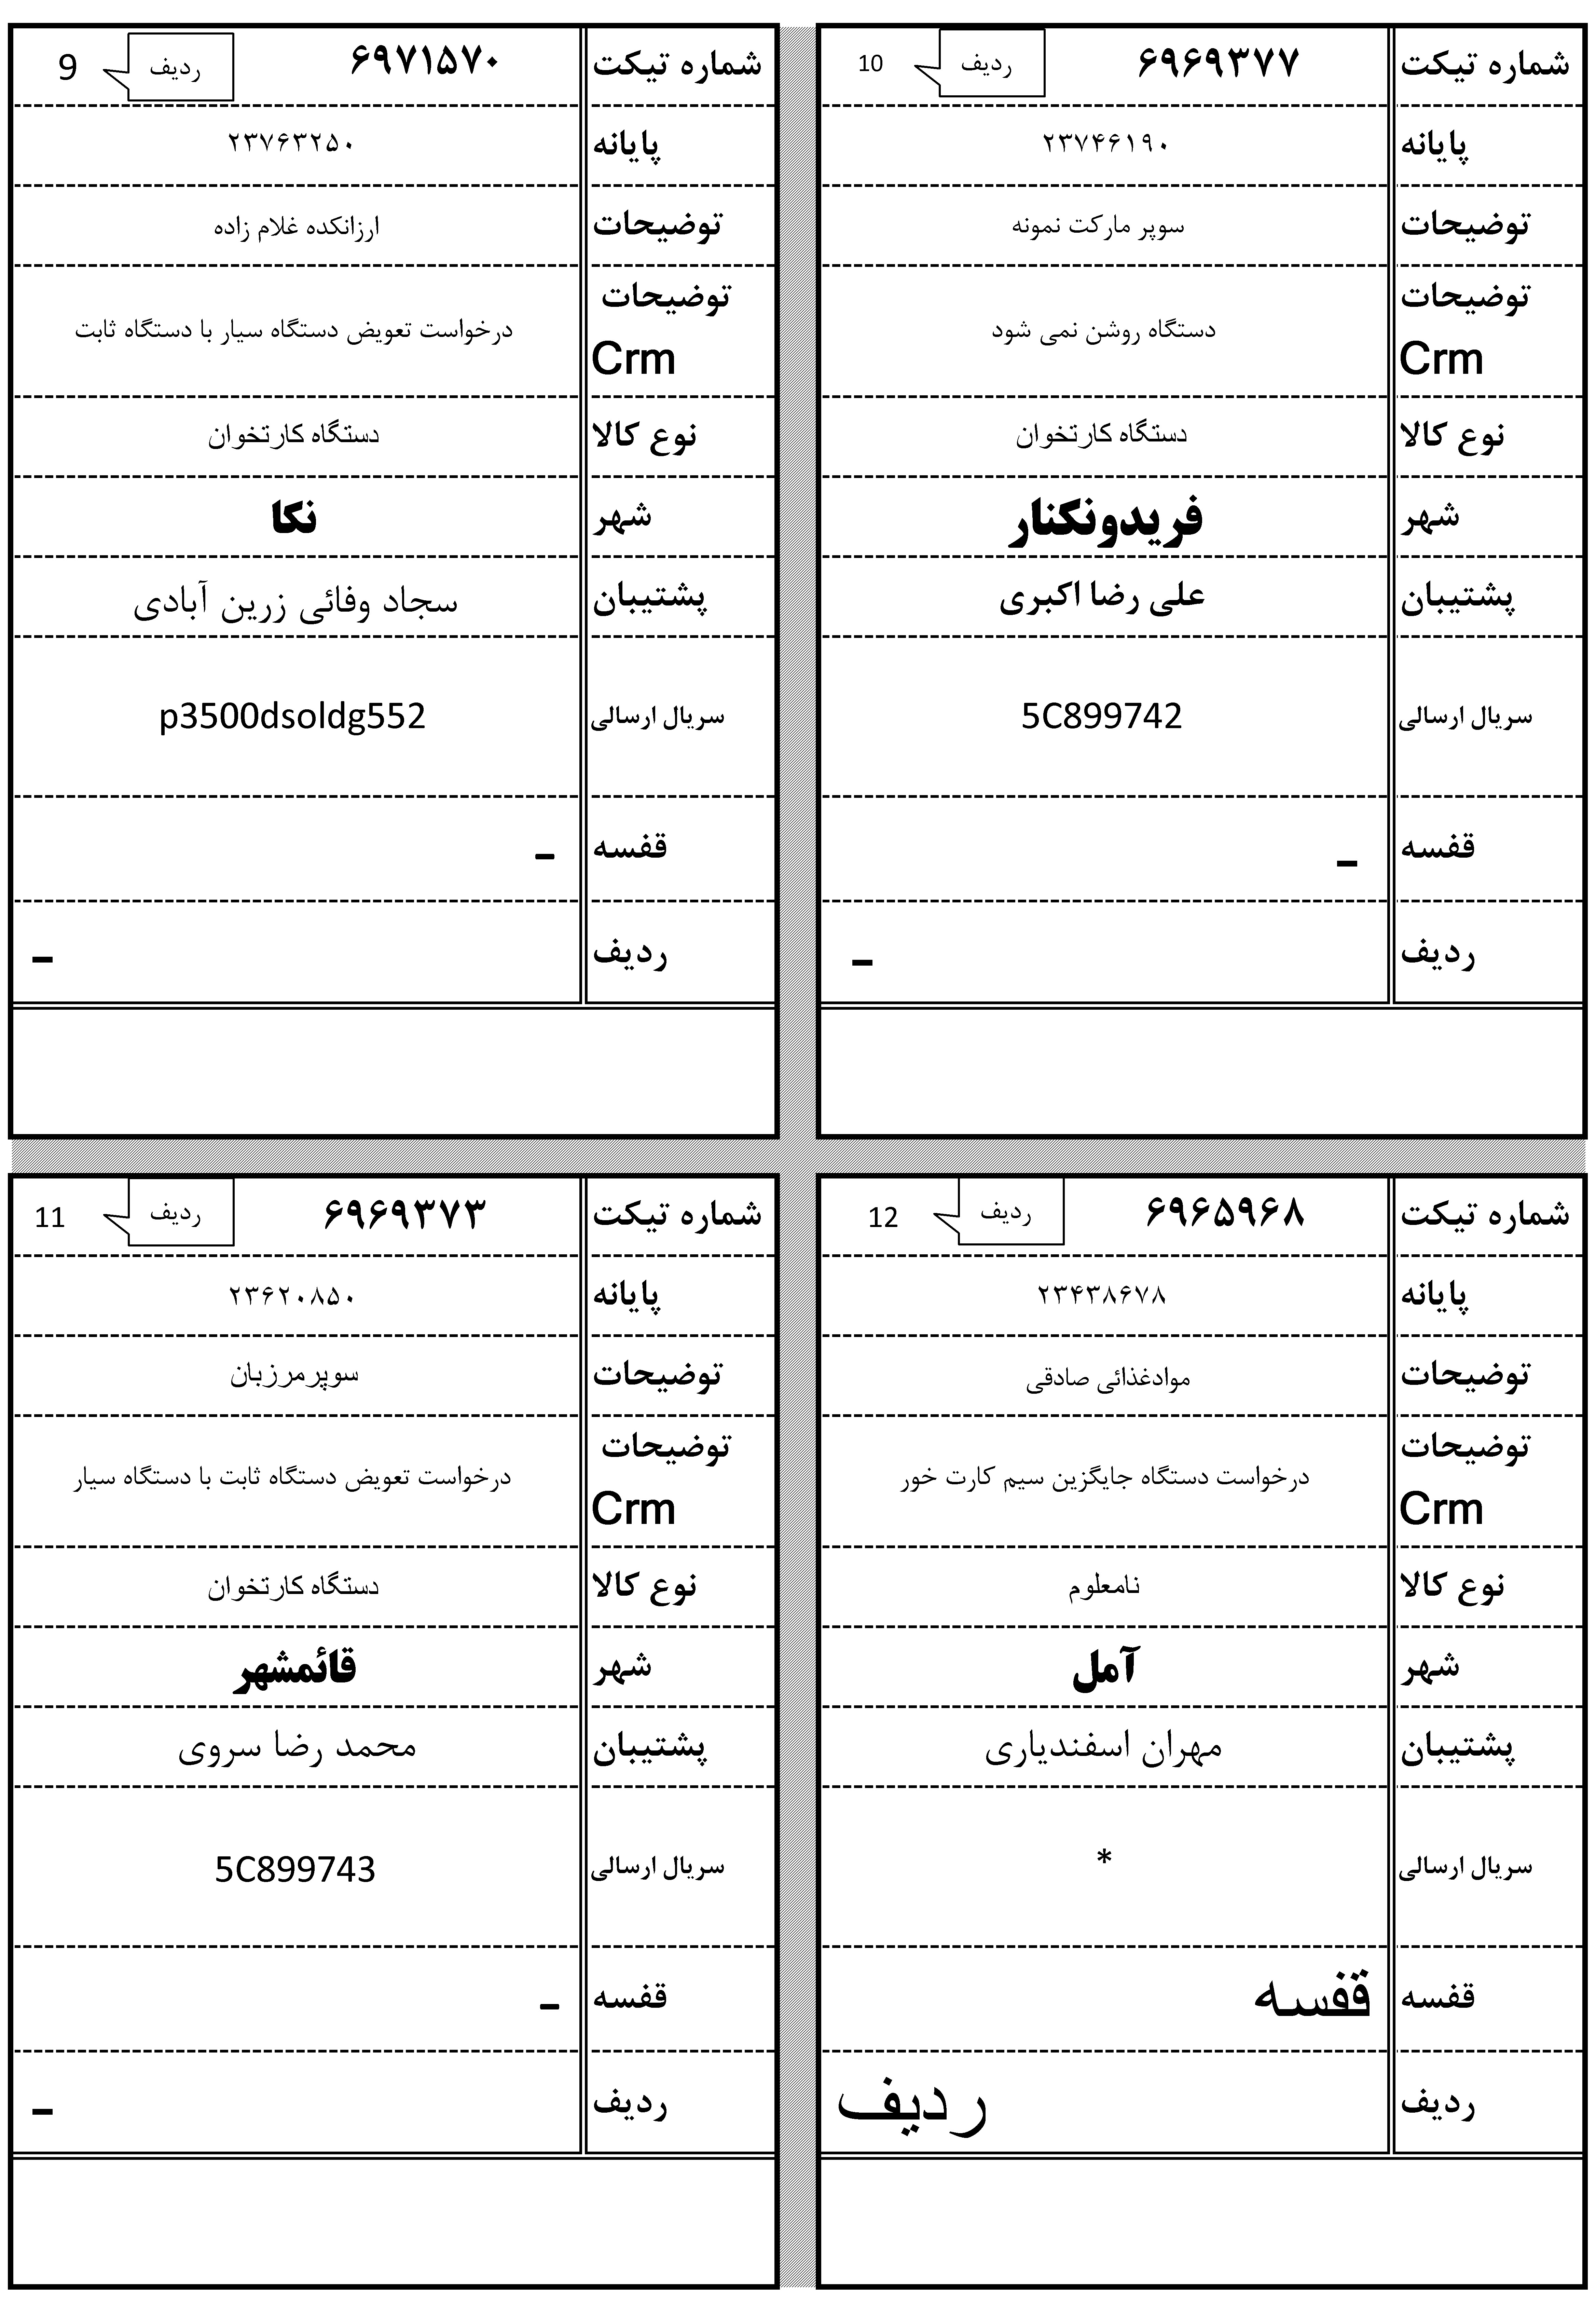 شماره تیکت ۶۹۶۹۳۷۷ ردیف 10
پایانه ۲۳۷۴۶۱۹۰
توضیحات سوپر مارکت نمونه
توضیحات
Crm
دستگاه روشن نمی شود
نوع کالا دستگاه کارتخوان
شهر فریدونکنار
پشتیبان علی رضا اکبری
سریال ارسالی 5C899742
قفسه -
ردیف -
شماره تیکت ۶۹۷۱۵۷۰ ردیف 9
پایانه ۲۳۷۶۳۲۵۰
توضیحات ارزانکده غلام زاده
توضیحات
Crm
درخواست تعویض دستگاه سیار با دستگاه ثابت
نوع کالا دستگاه کارتخوان
شهر نکا
پشتیبان سجاد وفائی زرین آبادی
سریال ارسالی p3500dsoldg552
قفسه -
ردیف -
شماره تیکت ۶۹۶۵۹۶۸ ردیف 12
پایانه ۲۳۴۳۸۶۷۸
توضیحات موادغذائی صادقی
توضیحات
Crm
درخواست دستگاه جایگزین سیم کارت خور
نوع کالا نامعلوم
شهر آمل
پشتیبان مهران اسفندیاری
سریال ارسالی *
قفسه قفسه
ردیف ردیف
شماره تیکت ۶۹۶۹۳۷۳ ردیف 11
پایانه ۲۳۶۲۰۸۵۰
توضیحات سوپرمرزبان
توضیحات
Crm
درخواست تعویض دستگاه ثابت با دستگاه سیار
نوع کالا دستگاه کارتخوان
شهر قائمشهر
پشتیبان محمد رضا سروی
سریال ارسالی 5C899743
قفسه -
ردیف -